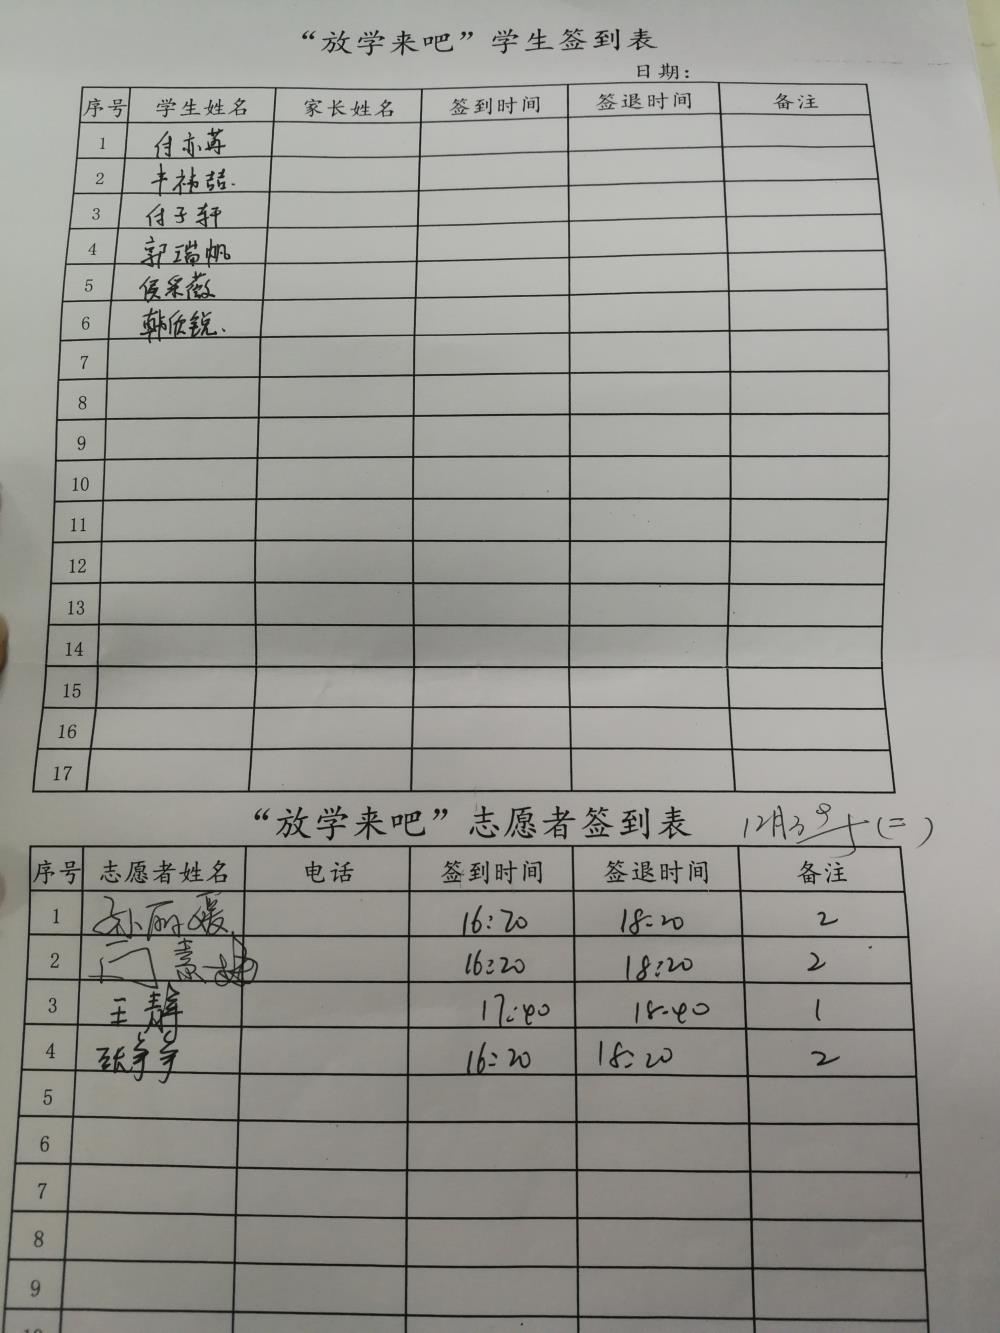 “放学来吧”学生签到表
日期:
序号 学生姓名 家长姓名 签到时间 签退时间 备注
1 付亦苒
2 祎喆.
3 付子轩
4 郭瑞帆
5 侯采薇
6 韩欣锐.
7
8
9
10
11
12
13
14
15
16
17
“放学来吧”志愿者签到表 12月3号(二)
序号 志愿者姓名 电话 签到时间 签退时间 备注
1 孙丽媛 16:20 18:20 2
2 门 16:20 18:20 2
3 王静 17:40 18:40 1
4 张争争 16:20 18:20 2
5
6
7
8
9
10